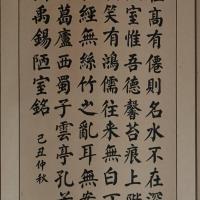 在高有僊則名水不在深
室惟吾德馨苔痕上
笑有鴻儒往來無白丁
經無絲竹之亂耳無案
葛廬西蜀子雲亭孔子
禹錫陋室銘
己丑仲秋